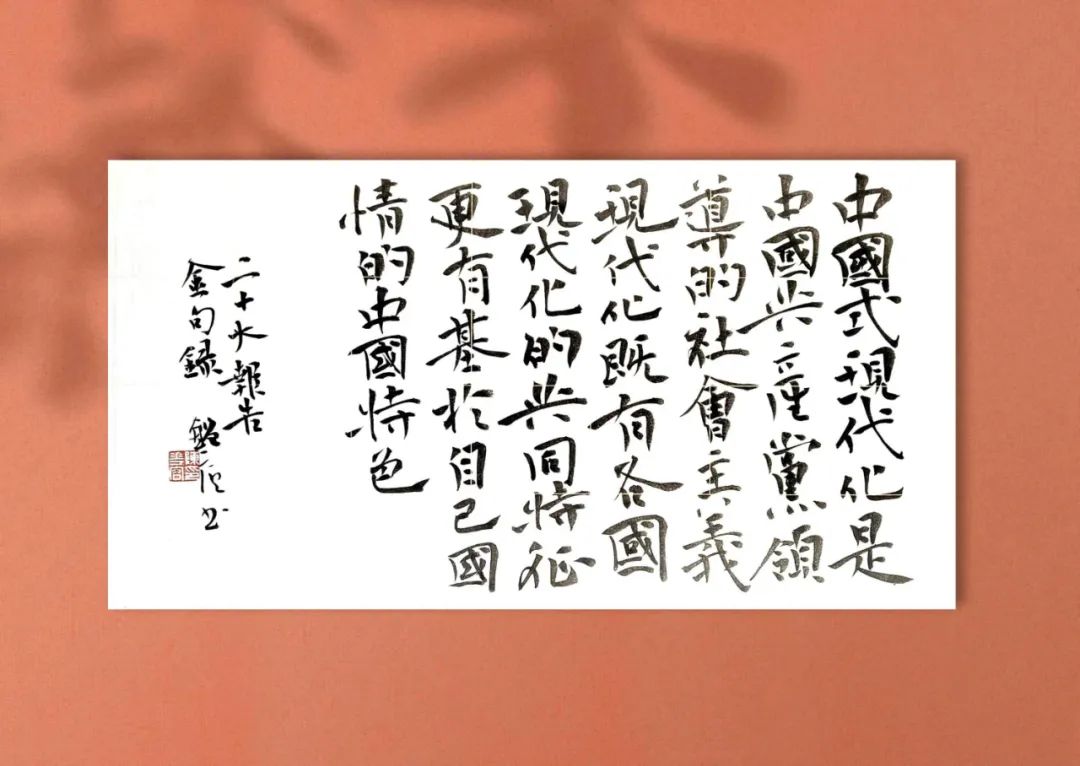 中國式現代化是
中國共产產黨領
導的社會主義
現代化既有各國
現代化的共同特征
更有基於自己國
情的中國特色
二十大報告
金句録
書